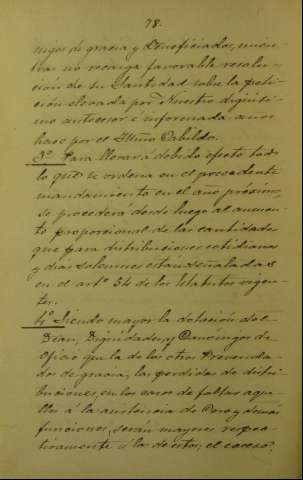 78.
nigos de gracia y Beneficiados, mien-
tras no recaiga favorable resolu-
ción de su Santidad sobre la peti-
ción elevada por Nuestro dignísi-
mo antecesor é informada años
hace por el Iltmo Cabildo.
3º Para llevar á debido efecto todo
lo que se ordena en el precedente
mandamiento en el año próximo,
se procederá desde luego al aumen-
to proporcional de las cantidades
que para distribuciones cotidianas
y días solemnes están señaladas
en el artº 34 de los Estatutos vigen-
tes.
4º Siendo mayor la dotación del
Dean, Dignidades, y Canónigos de
Oficio que la de los otros Prevenda-
dos de gracia, las pérdidas de distri-
buciones, en los casos de faltas aque-
llos á la asistencia de Coro y demás
funciones, serán mayores respec-
tivamente á las de estos; el exceso,